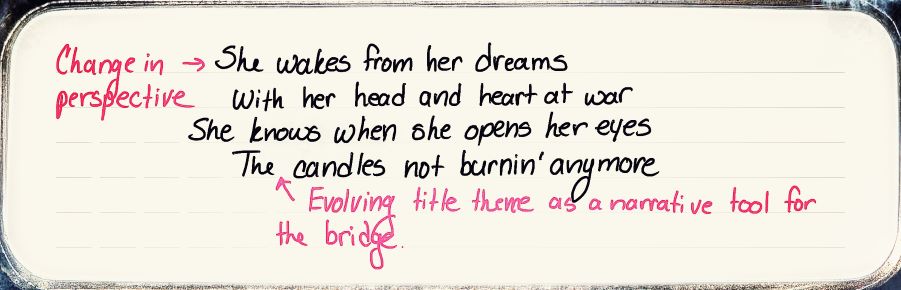 Change in → She wakes from her dreams
perspective With her head and heart at war
She knows when she opens her eyes
The candles not burnin' anymore
Evolving title theme as a narrative tool for
the bridge.